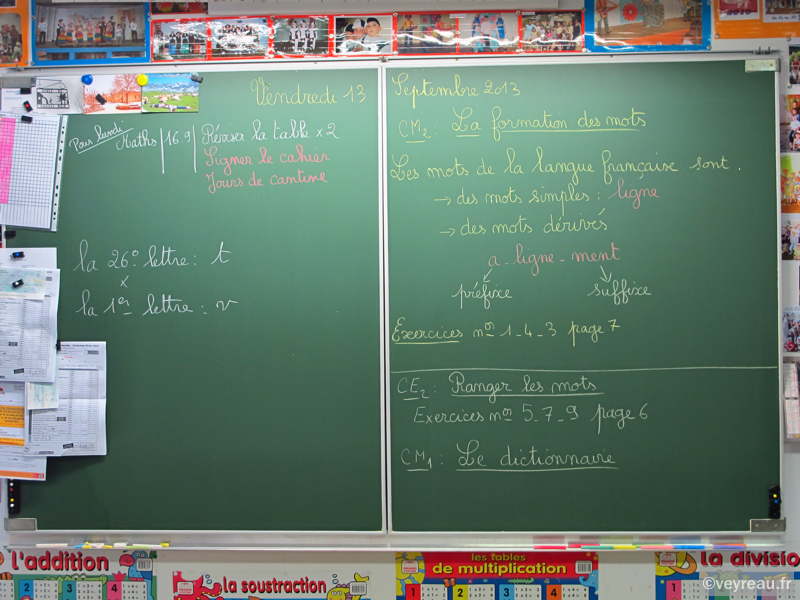 Vendredi 13 Septembre 2013
Pour lundi
Maths | 16.9 | Réviser la table x 2
Signer le cahier
Jours de cantine
la 26e lettre : t
x
la 1er lettre : v
CM2 : La formation des mots
Les mots de la langue française sont.
→ des mots simples : ligne
→ des mots dérivés
a - ligne - ment
préfixe suffixe
Exercices nos 1 - 4 - 3 page 7
CE2 : Ranger les mots
Exercices nos 5 - 7 - 9 page 6
CM1 : Le dictionnaire
l'addition
la soustraction
les tables
de multiplication
la divisio
1 2 3 4
©veyreau.fr